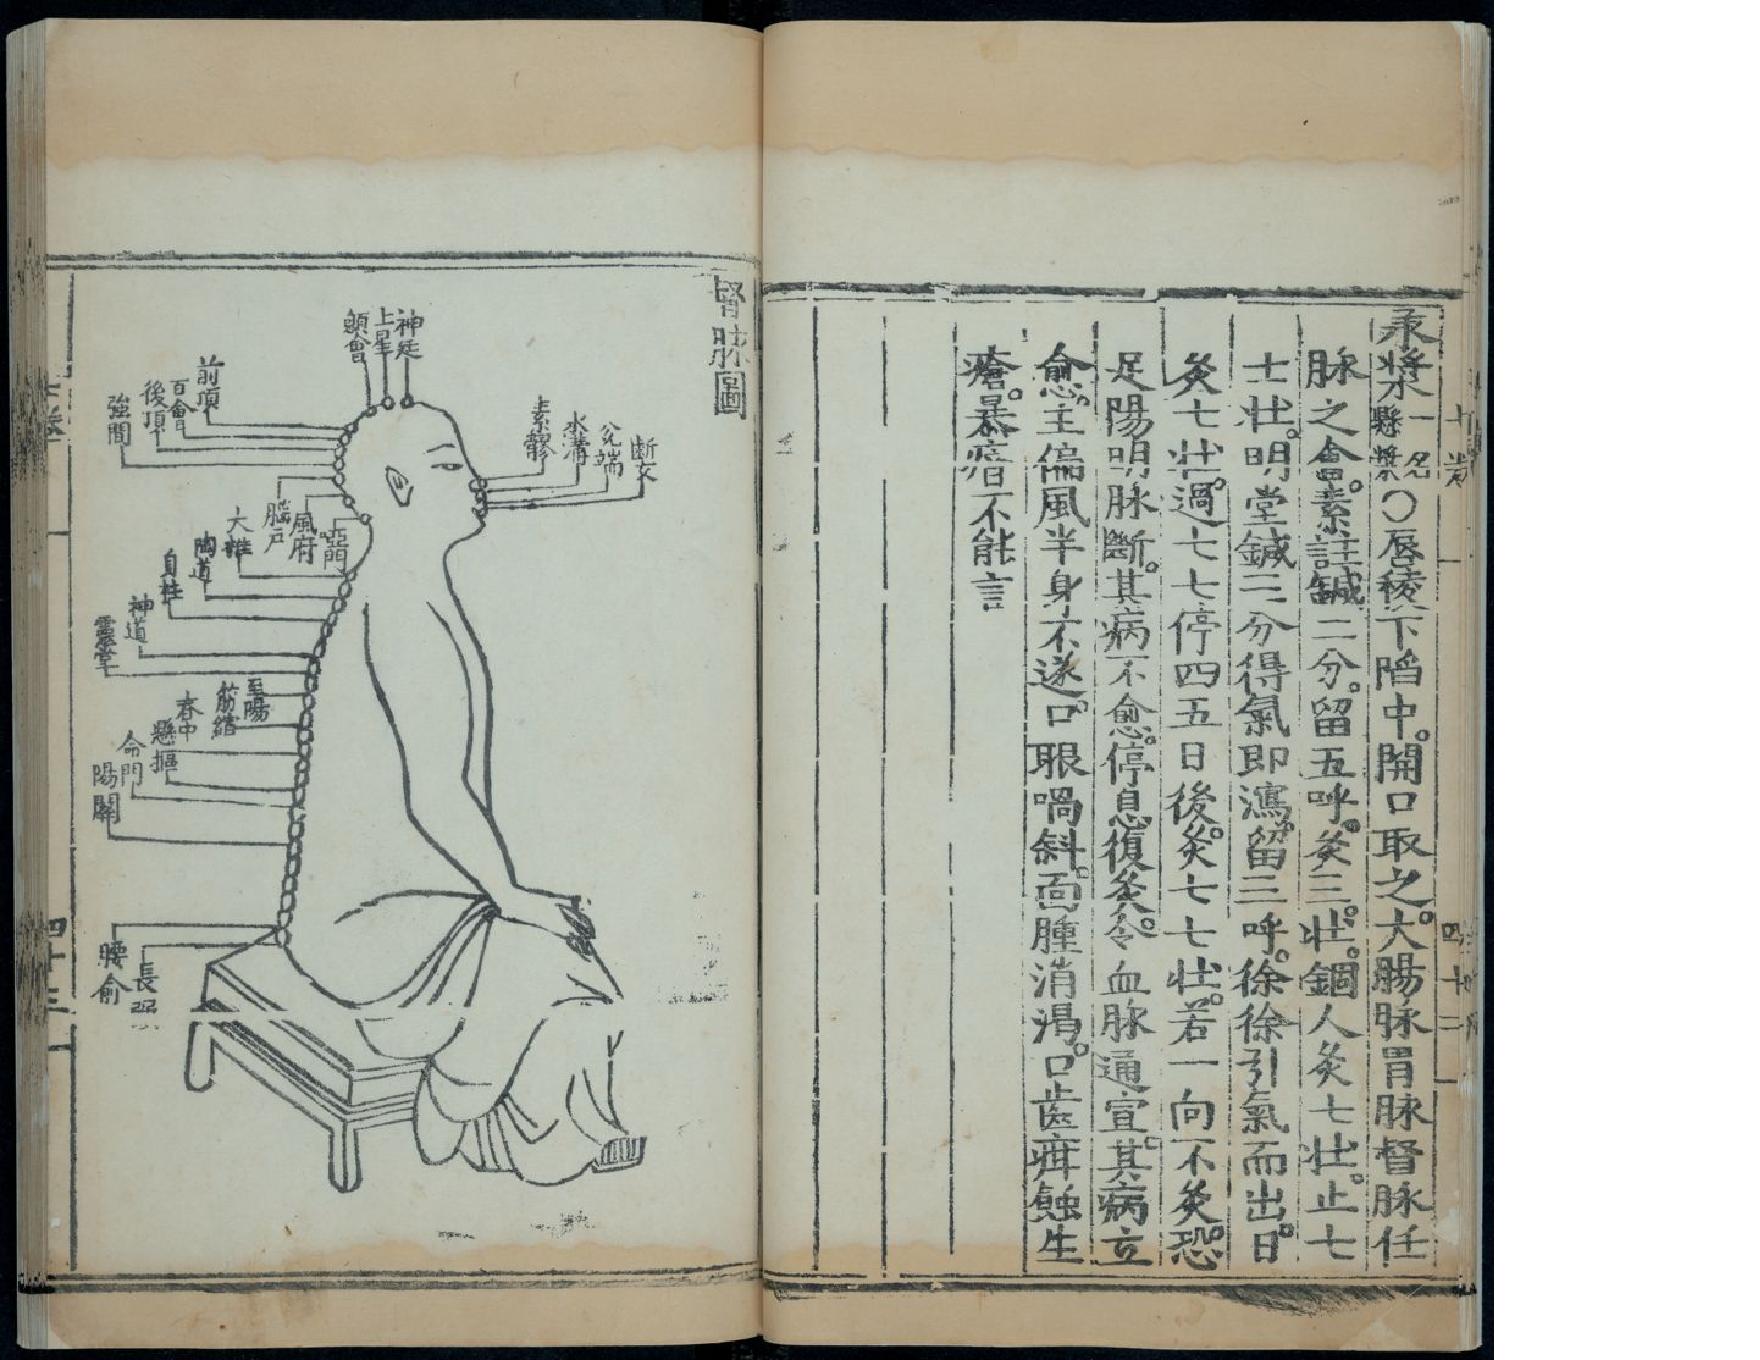 承漿一名懸漿〇唇稜下陷中。開口取之。大腸脉胃脉督脉任
脉之會。素註鍼二分。留五呼。灸三。壯。錮人灸七壯。止七
士壯。明堂鍼三分得氣即瀉。留三呼。徐徐引氣而出。日
灸七壯。過七七停四五日後。灸七七壯。若一向不灸。恐
足陽明脉斷。其病不愈。停息復灸。令血脉通宣。其病立
愈。主偏風半身不遂。口眼喎斜。面腫消渴。口齒疳蝕生
瘡。暴瘖不能言
七卷
四十二
督脉圖
神廷
上星
顖會
前頂
百會
後頂
強間
素髎
水溝
兌端
断交
腦戶
風府
瘂門
大椎
陶道
身柱
神道
靈臺
至陽
筋縮
脊中
懸樞
命門
陽關
腰俞
長强
七卷
四十三